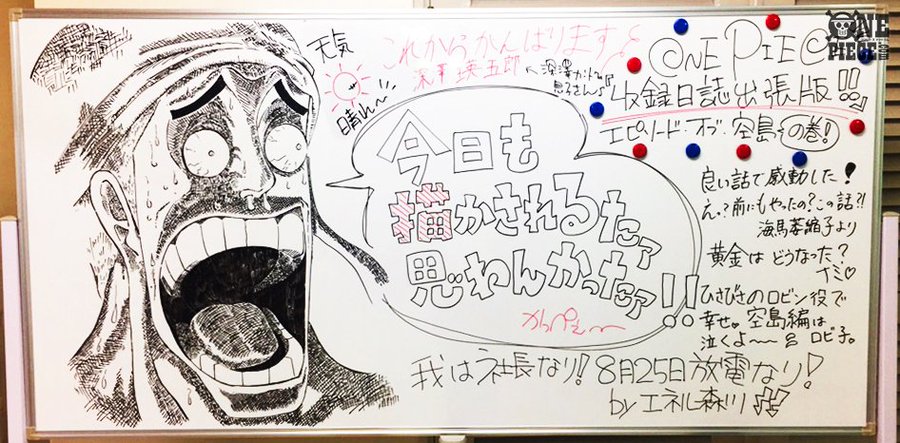 ONE PIECE
ONE PIECE
収録日誌出張版!!
エピソード・オブ・空島〜の巻!
天気
晴れ〜
これからがんばります
今日も
描かされるたァ
思わんかったァ!!
かっぺぇ〜
良い話で感動した!
え?前にもやったの?この話?!
海馬茶織子より
黄金はどうなった?
ナミ♡
ひさびさのロビン役で
幸せ。空島編は
泣くよ〜〜 ロビ子。
我は社長なり!! 8月25日放電なり!
by エネル森川